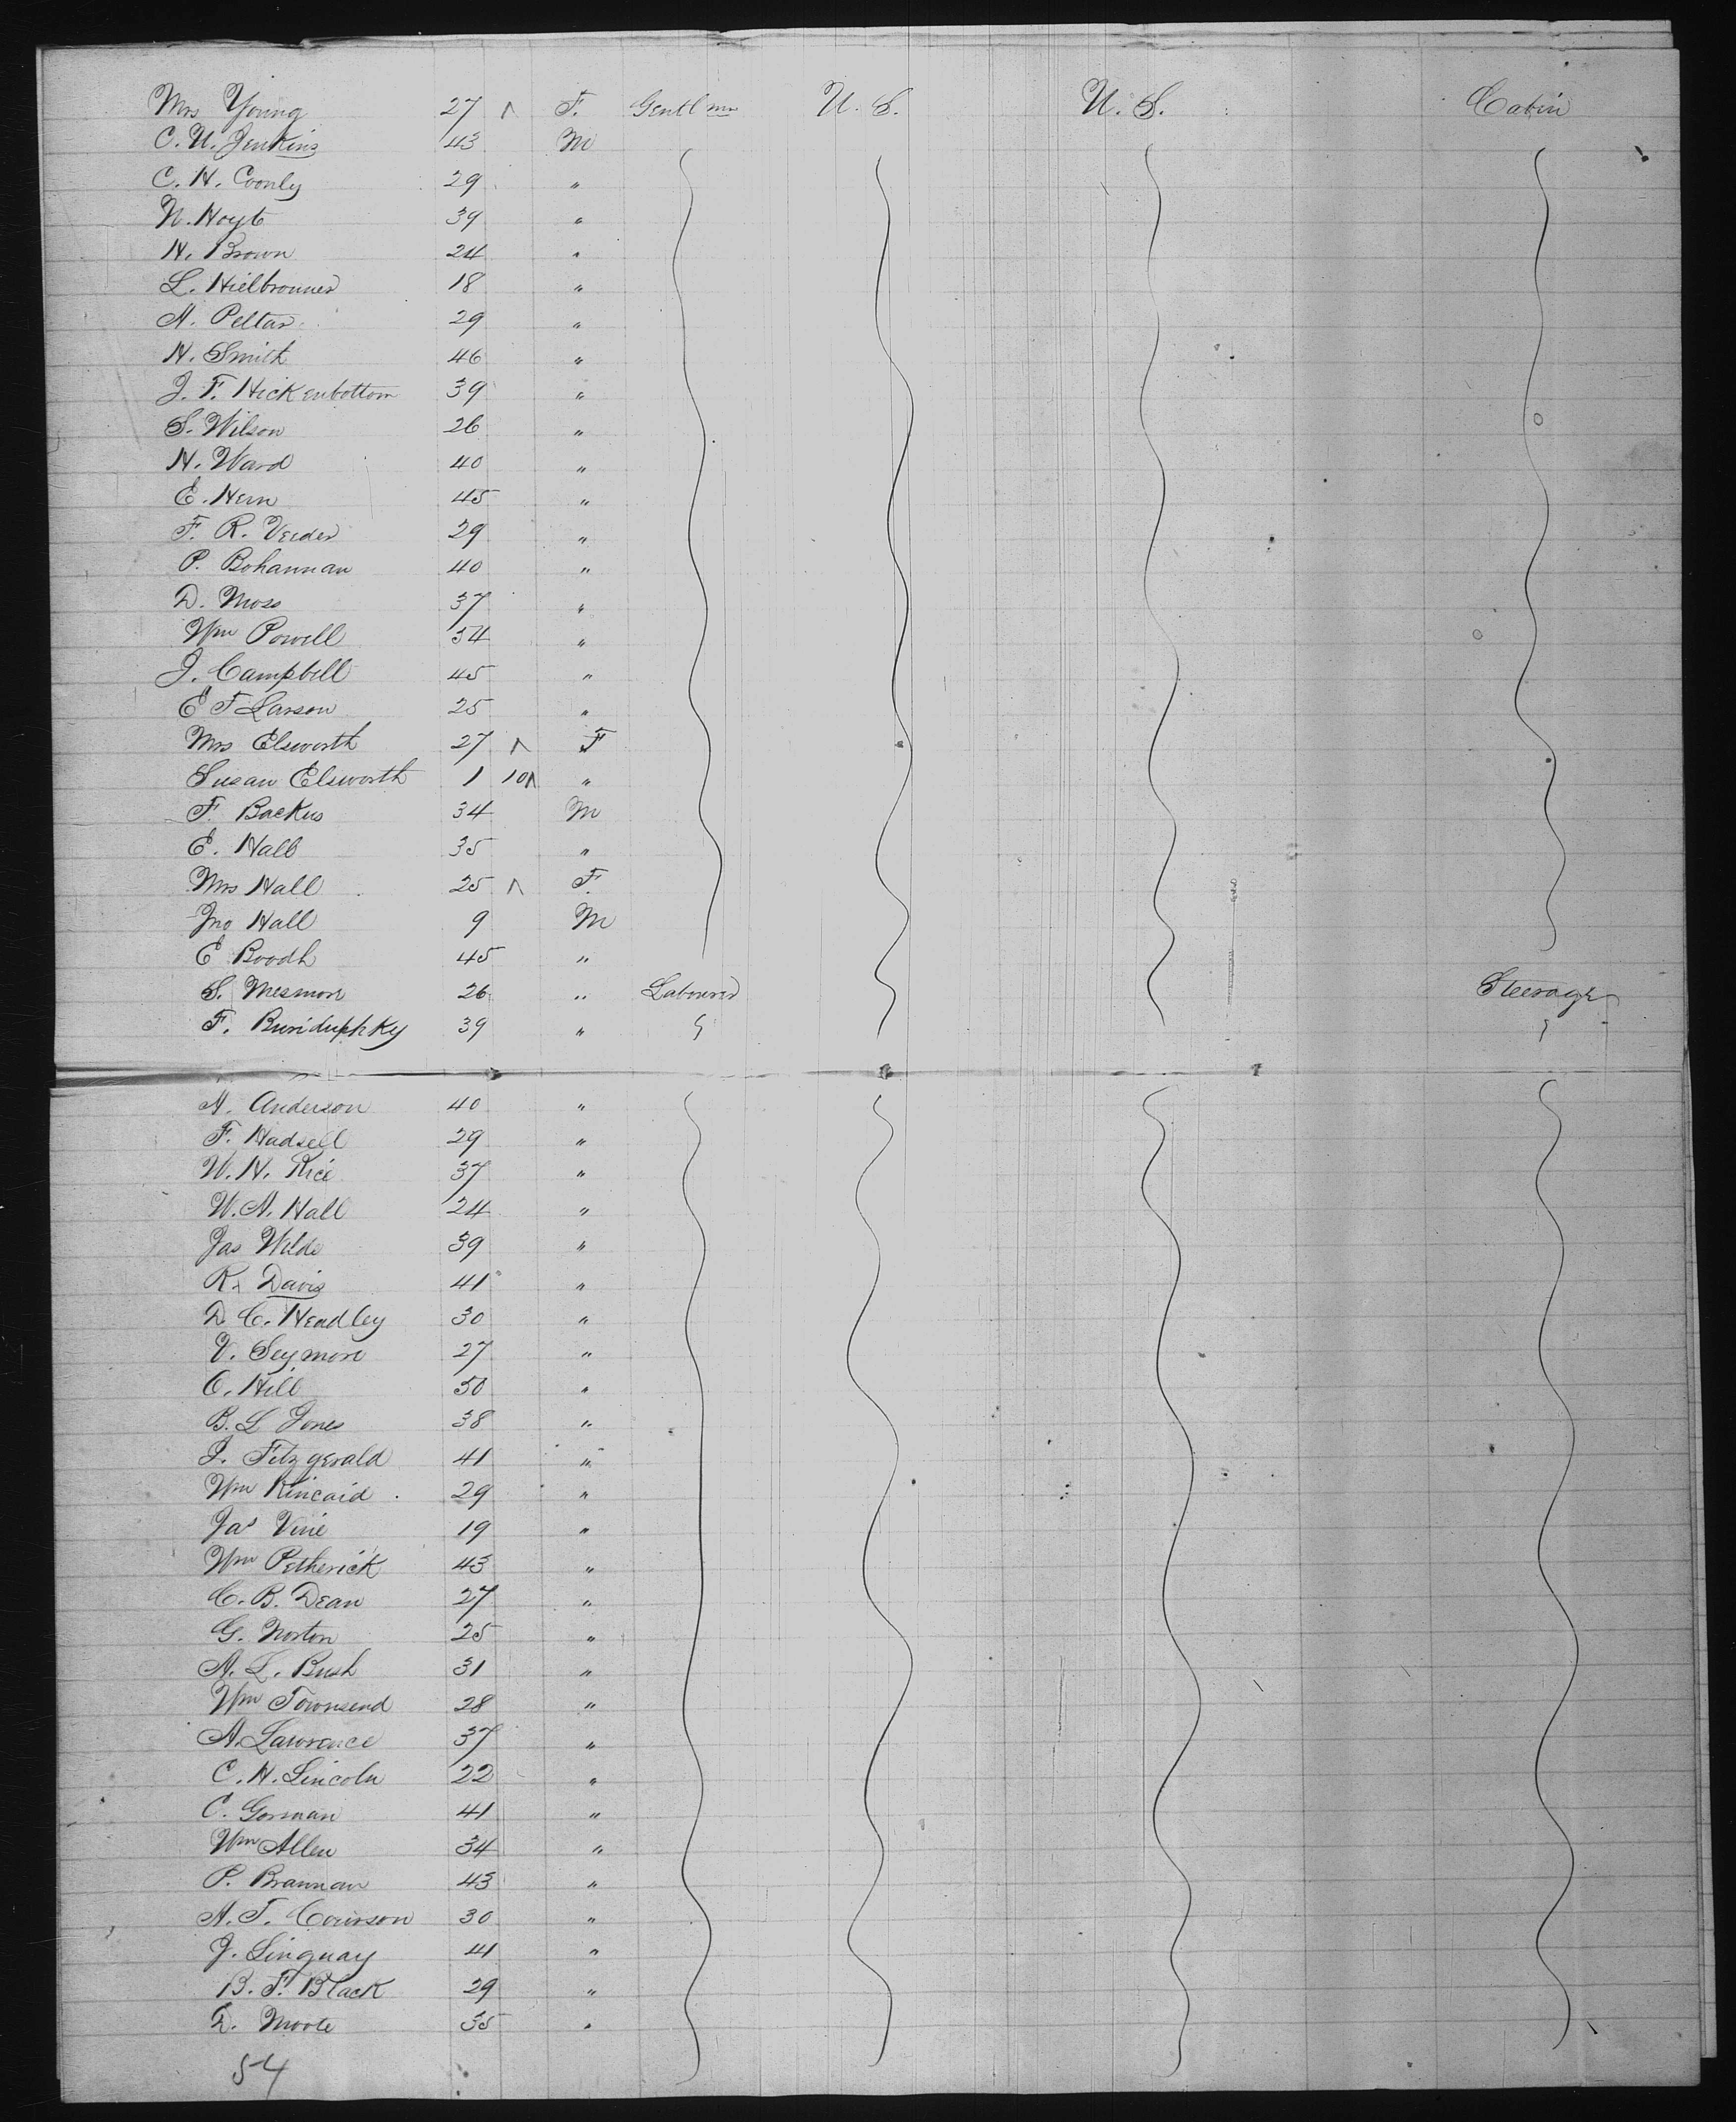 Mrs Young 27 ^ F. Gentl mn U. S. U. S. Cabin
C. U. Jenkins 43 M
C. H. Coonly 29 "
N. Hoyt 39 "
H. Brown 24 "
L. Hielbronner 18 "
A. Peltar 29 "
H. Smith 46 "
J. F. Hickenbottom 39 "
S. Wilson 26 "
H. Ward 40 "
E. Hern 45 "
F. R. Veeder 29 "
P. Bohannan 40 "
D. Moss 37 "
Wm Powell 34 "
J. Campbell 45 "
E F Larson 25 "
Mrs Elsworth 27 ^ F
Susan Elsworth 1 10^ "
F. Backus 34 M
E. Hall 35 "
Mrs Hall 25 ^ F.
Jno Hall 9 M
E Boodh 45 "
S. Mesmore 26 " Labourer Steerage
F. 39 "
A. Anderson 40 "
F. Hadsell 29 "
W. H. Rice 37 "
W. A. Hall 24 "
Jas Wilde 39 "
R. Davis 41 "
D. C. Headley 30 "
V. Seymore 27 "
O. Hill 50 "
B. L Jones 38 "
J. Fitzgerald 41 "
Wm Kincaid 29 "
Jas Vine 19 "
Wm Petherick 43 "
C. B. Dean 27 "
G. Norton 25 "
A. L. Bush 31 "
Wm Townsend 28 "
A. Lawrence 37 "
C. H. Lincoln 22 "
C. Gorman 41 "
Wm Allen 34 "
P. Brannan 43 "
A. T. Courson 30 "
J. Linquay 41 "
B. F. Black 29 "
D. Moore 35 "
54